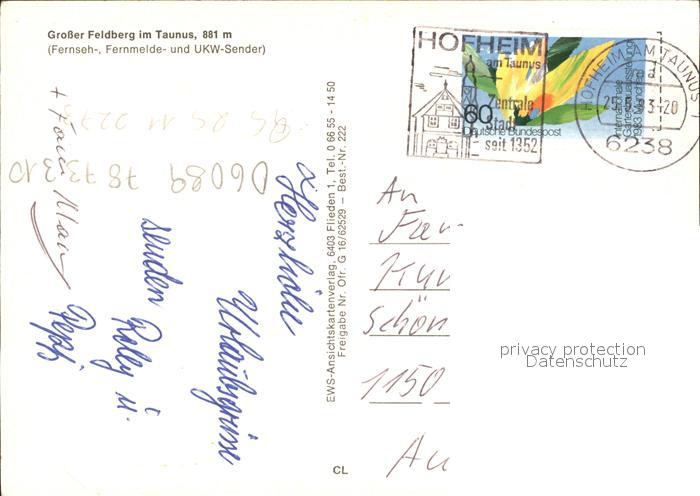 Großer Feldberg im Taunus, 881 m
(Fernseh-, Fernmelde- und UKW-Sender)
HOFHEIM
am Taunus
Zentrale
Stadt
seit 1352
60
Deutsche Bundespost
Internationale
Gartenbauausstellung
1983 München
HOFHEIM AM TAUNUS 1
6238
Herzliche
Urlaubsgrüsse
senden Rolly u.
Peppi
+ Fam
06089 787330
EWS-Ansichtskartenverlag, 6403 Flieden 1, Tel. 0 66 55 - 14 50
Freigabe Nr. Ofr. G 16/62529 – Best.-Nr. 222
CL
An
Fam
Schön
1150
Au
privacy protection
Datenschutz